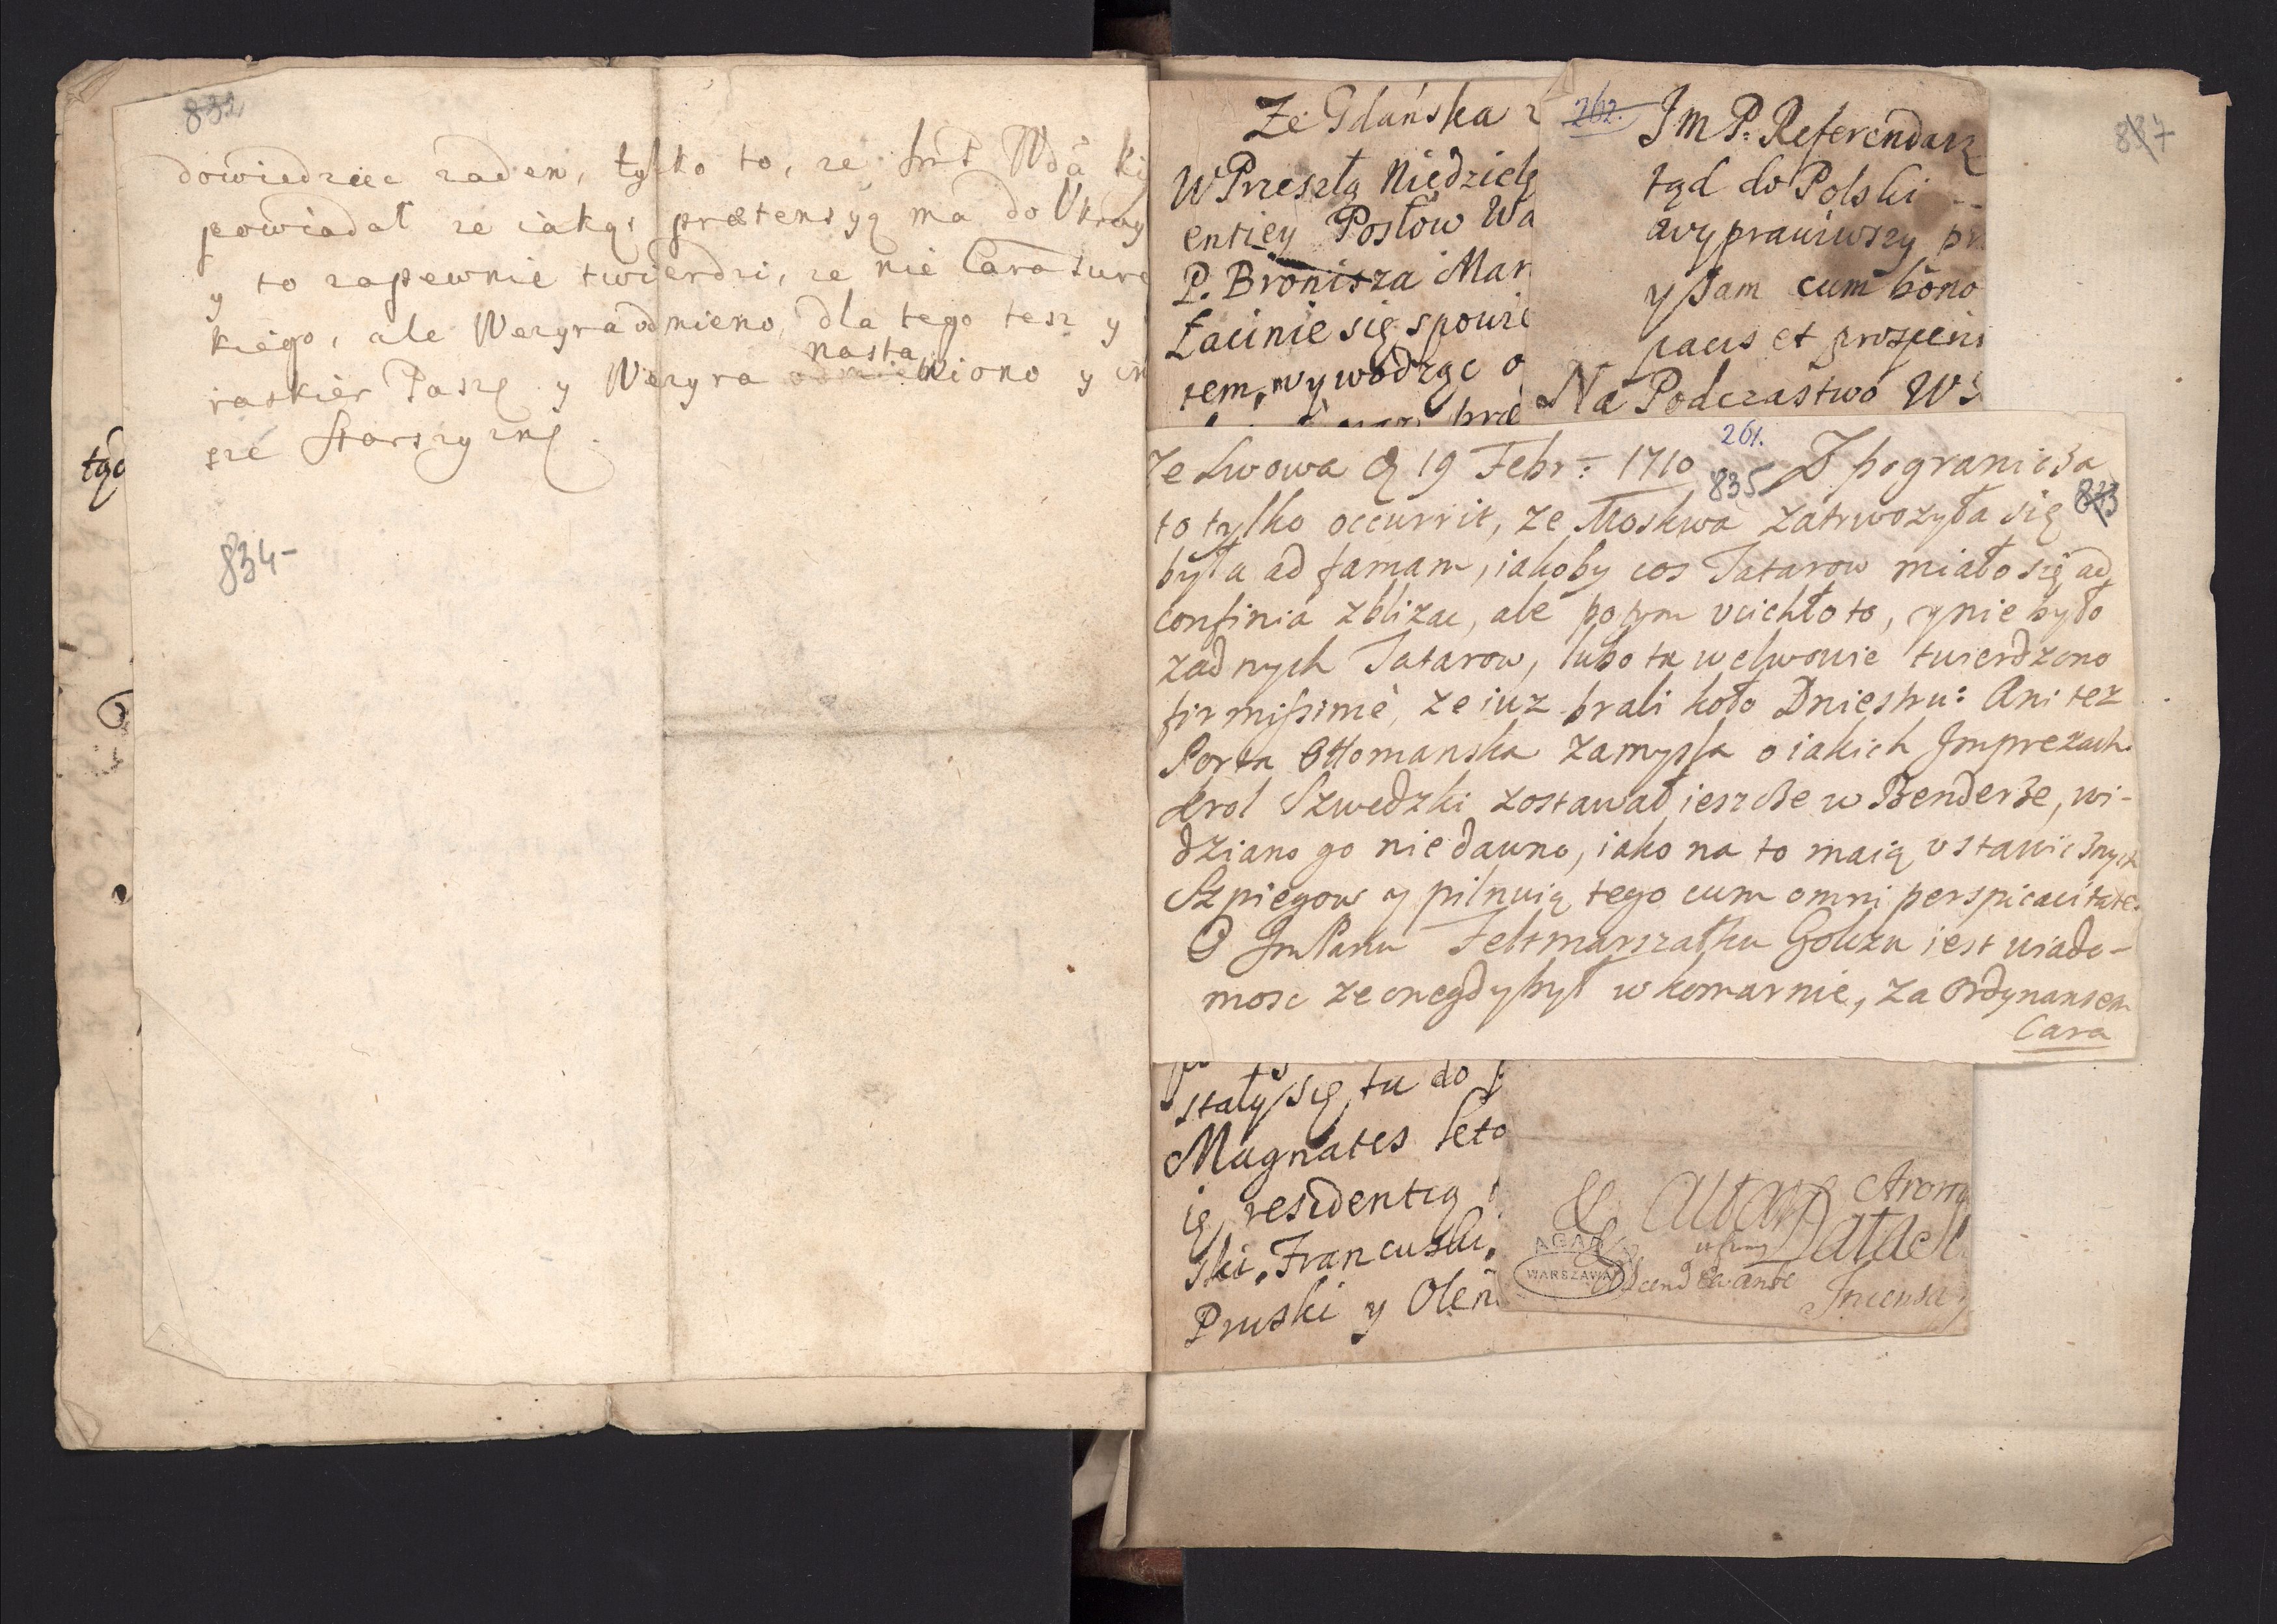 832
dowiedziec zaden, tylko to, ze Jmć Wdа Ki
powiadał ze iakąs prætensyą ma do Ukray
y to zapewnie twierdzi, ze nie Cara Ture
kiego, ale Wezyra odmieno, dla tego tesz y
raskier Paszę y Wezyra
nasta
niono y in
szé Starszyznę.
834-
tąd
Ze Gdańska
W Przeszłą Niedzielę
entiey Posłow Wa
P. Bronisza Mar
Łacinie się spowie
tem, wywodząc o
præ
262.
Jm P: Referendarz
tąd do Polski
wyprawiwszy pr
y sam cum bono
pacis et prosperi
Na Podczastwo WS
837
261.
Ze Lwowa d 19 Febr: 1710 Z pogranicza
835
833
to tylko occurrit, ze Moskwa zatrwozyła się
była ad famam, iakoby cos Tatarow miało się ad
confinia zblizac, ale potym ucichło to, y nie było
zadnych Tatarow, lubo tu we Lwowie twierdzono
firmissimè, ze iuz brali koło Dniestru: Ani tez
Porta Ottomanska zamysla o iakich Imprezach.
Krol Szwedzki zostawał ieszcze w Benderze, wi-
dziano go niedawno, iako na to maią ustawicznych
Szpiegow y pilnuią tego cum omni perspicacitate.
O Jm Panu Feltmarszałku Goltzu iest wiado-
mosc ze onegdy był w Komarnie, za Ordynansem
Cara
stały się tu do
Magnates
ię residentią
ski, Francuski,
Pruski y Olen
&
Altari
AGAD
WARSZAWA